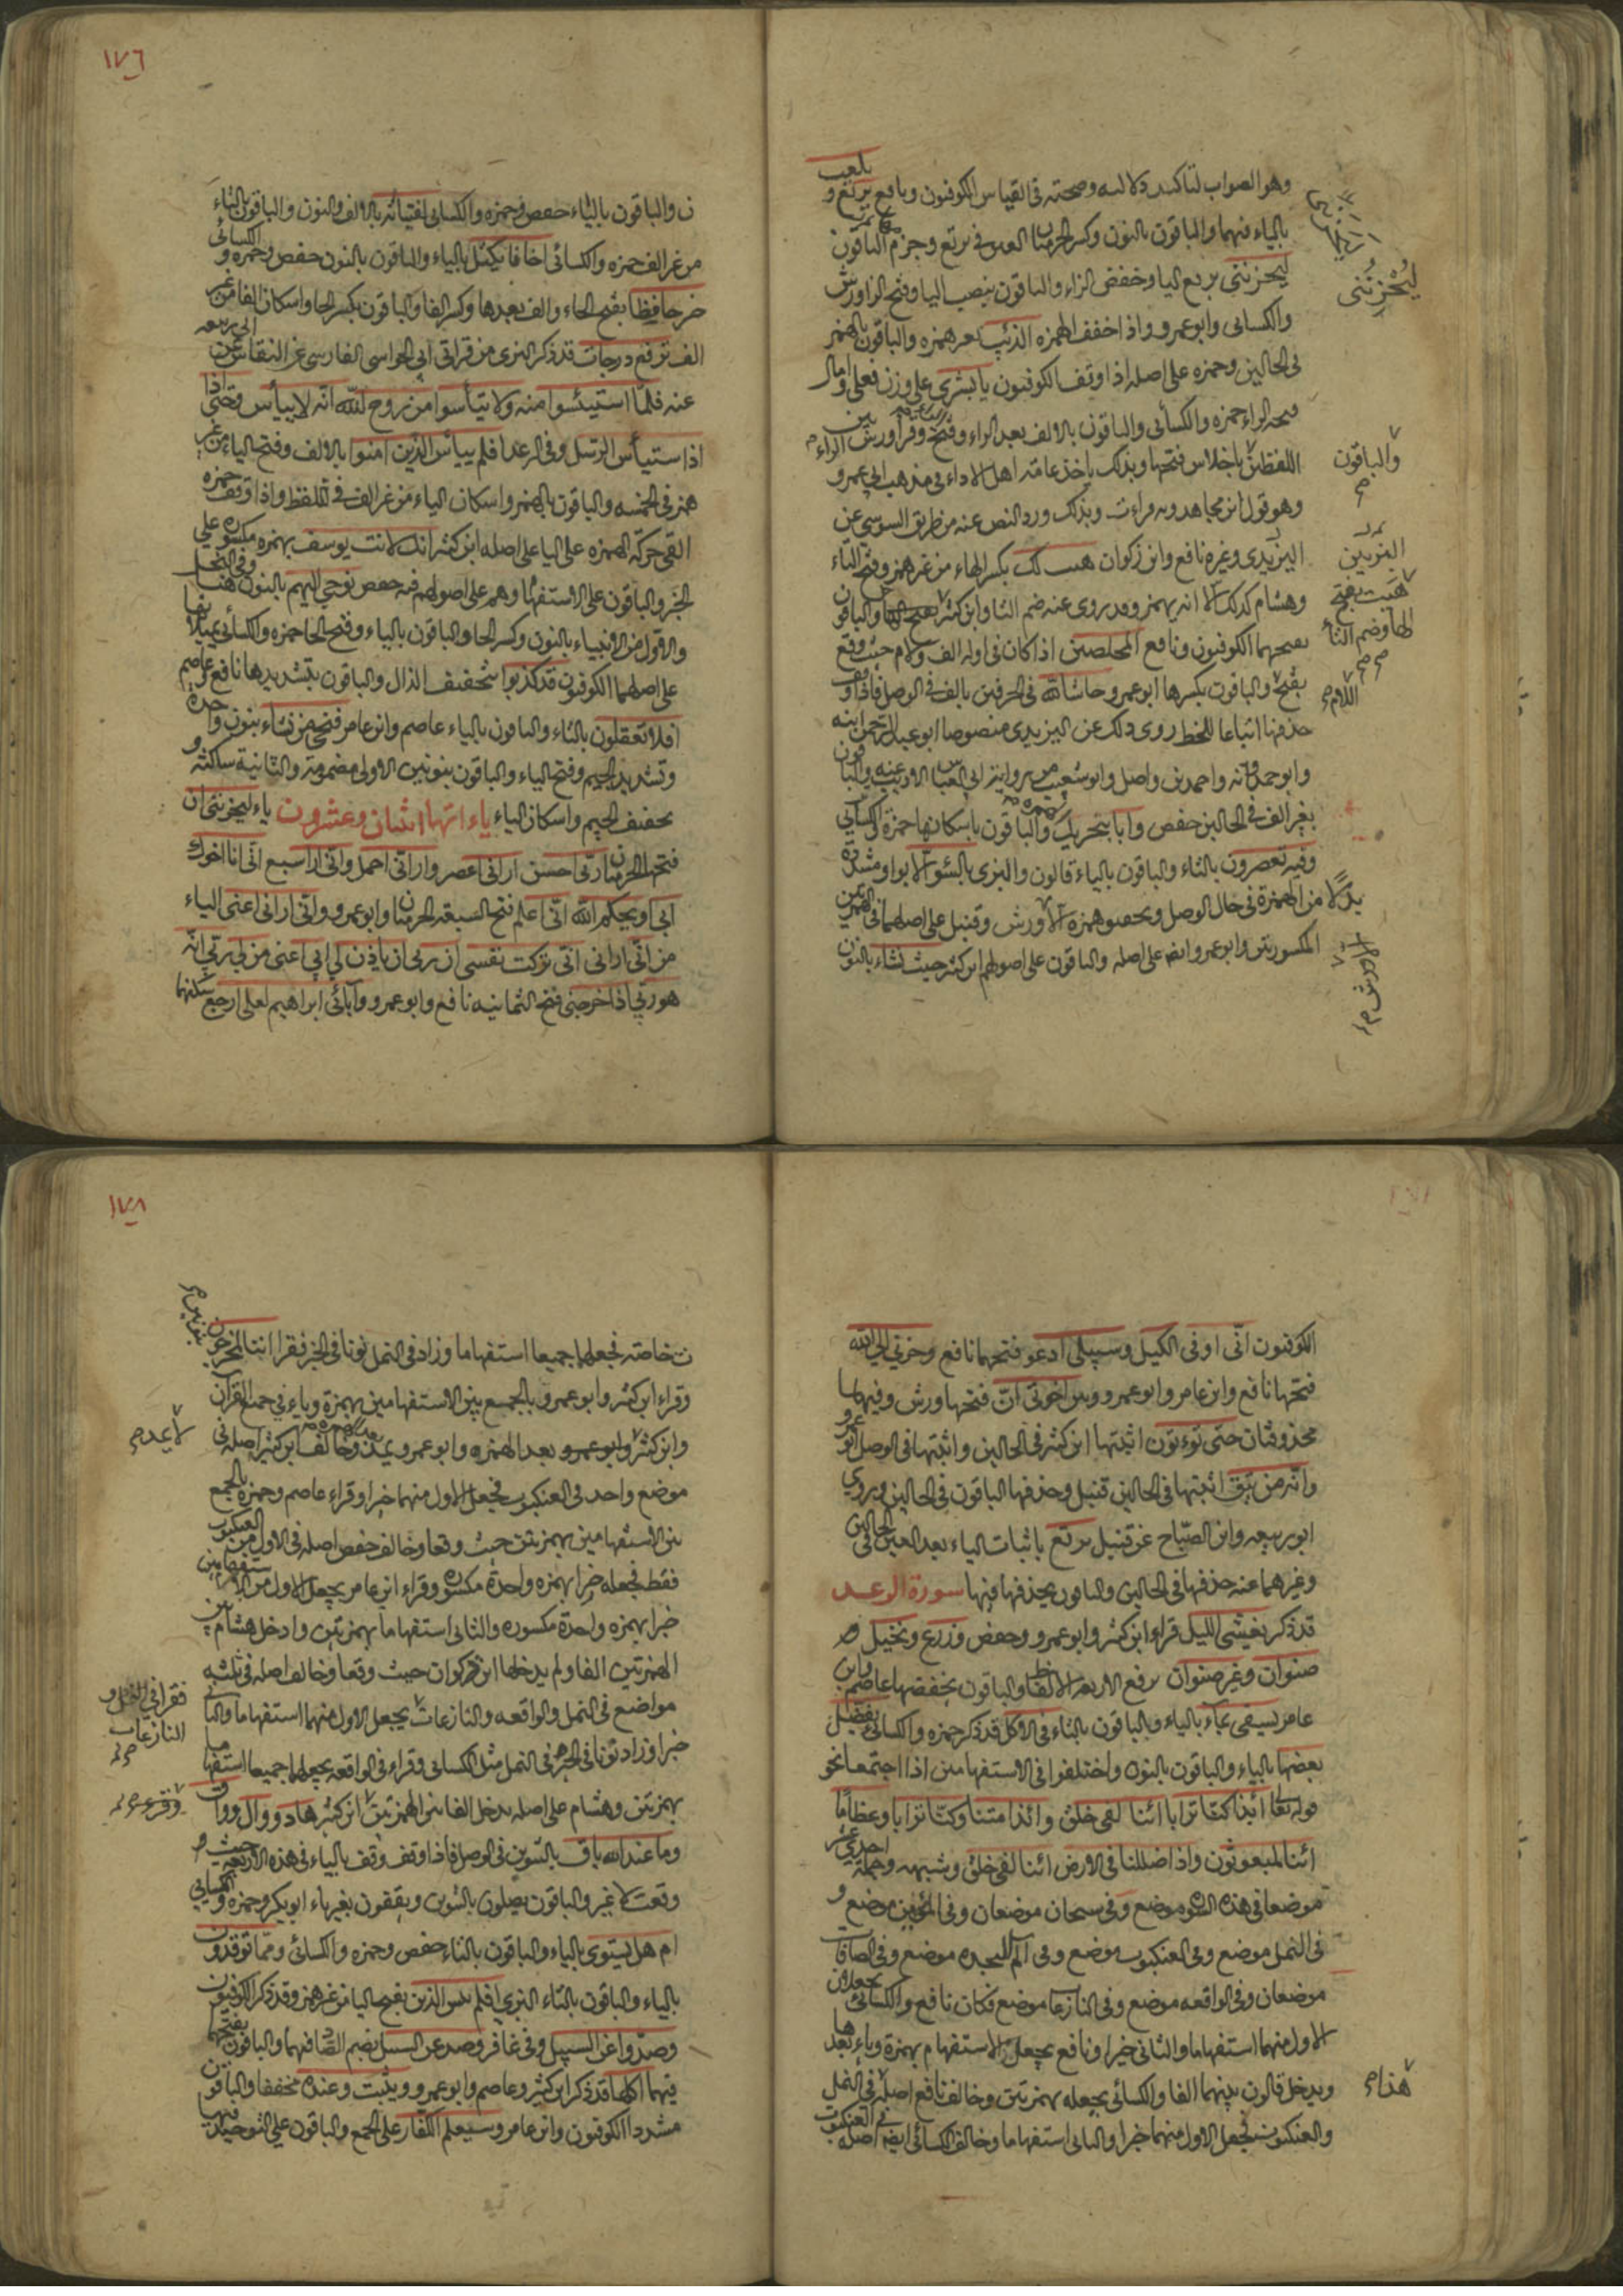 وهو الصواب لتاكيد دلالته وصحته في القياس الكوفيون ونافع يرتع و
يلعب
بالياء فيهما والباقون بالنون وكسر الحرميان العين في يرتع وجزم الباقون
ليحزنني برفع اليا وخفض الزاء والباقون بنصب اليا وفتح الزا ورش
والكسائى وابو عمرو واذا خفف الهمزه الذئب بغير همزه والباقون بالهمز
فى الحالين وحمزه على اصله اذا وقف الكوفيون يا بشرى على وزن فعلى وامال
فتحه الراء حمزه والكسائى والباقون بالالف بعد الراء وفتح وقرا ورش الراء بين
اللفظين باخلاس فتحها وبذلك ياخذ عامّه اهل الاداء فى مذهب ابى عمرو
وهو قول ابن مجاهد وبه قرات وبذلك ورد النص عنه من طريق السوسي عن
اليزيدى وغيره نافع وابن زكوان هيت لك بكسر الهاء من غير همز وفتح التاء
وهشام كذلك الا انه يهمز وقد روى عنه ضم التا وابن كثير بفتح الها والباقون
بفتحهما الكوفيون ونافع المخلصين اذا كان فى اوله الف ولام حيث وقع
بفتح والباقون بكسرها ابو عمرو حاشا لله فى الحرفين بالف فى الوصل فاذا وقف
حذفها اتباعا للخط روى ذلك عن اليزيدى منصوصا ابو عبد الرحمن ابنه
وابو حمدون واحمد بن واصل وابو شعيب من رواية ابى العباس الاديب عنه والباقون
بغير الف فى الحالين حفص دابا بتحريك الهمزه والباقون باسكانها حمزه والكسائي
وفيه تعصرون بالتاء والباقون بالياء قالون والبزى بالسّوّ الا بواو مشدّدة
بدلًا من الهمزة فى حال الوصل وتحقيق همزه الا ورش وقنبل على اصلهما فى الهمزتين
المكسورتين وابو عمرو ايضا على اصله والباقون على اصولهم ابن كثير حيث نشاء بالنون
ليُحْزِنُنى
والباقون
هيت بفتح
الها وضم التا
اللام
١٧٦
ن والباقون بالياء حفص وحمزه والكسائى لفتيانه بالالف والنون والباقون بالتاء
من غير الف حمزه والكسائى اخانا يكتل بالياء والباقون بالنون حفص وحمزه و
الكسائى
خير حافظا بفتح الحاء والف بعدها وكسر الفا والباقون بكسر الحا واسكان الفا من غير
الف نرفع درجات قد ذكر البزى من قراتى ابى الفارسى عن النقاش عن ابى ربيعه
عنه فلمّا استيئسوا منه ولا تيأسوا من روح الله انّه لا ييأس وحتّى اذا
اذا ستيأس الرسل وفى الرعد افلم ييأس الذين امنوا بالالف وفتح الياء من غير
همز فى الخمسه والباقون بالهمز واسكان الياء من غير الف فى اللفظ واذا وقف حمزه
القى حركه الهمزه على اليا على اصله ابن كثير انك لانت يوسف بهمزه مكسوره على
الخبر والباقون على الاستفهام وهم على اصولهم فيه حفص نوحى اليهم بالنون هنا وفى النحل
والاوّل من الانبياء بالنون وكسر الحا والباقون بالياء وفتح الحا حمزه والكسائى يميلا
على اصلهما الكوفيون قد كذبوا بتخفيف الذال والباقون بتشديدها نافع وعاصم
افلا تعقلون بالتاء والباقون بالياء عاصم وابن عامر فنجى من نشاء بنون واحده
وتشديد الجيم وفتح الياء والباقون بنونين الاولى مضمومة والثانية ساكنة و
تخفيف الجيم واسكان الياء ياءاتها اثنان وعشرون ياء ليحزننى ان
فتحها الحرميان ربّى احسن ارانى اعصر وارانى احمل وانّى ارا سبع انّى انا اخوك
ابى او يحكم الله انّى اعلم فتح السبعه الحرميان وابو عمرو وانّى ارانى اعنى الياء
من انّى ارانى انّى تركت نفسى ان ربى ان ياذن لى ابى اعنى من لى ربّى انّه
هو ربّى اذ اخرجنى فتح الثمانيه نافع وابو عمرو وآبائى ابراهيم لعلّى ارجع سكنها
الكوفيون انّى اوفى الكيل وسبيلى ادعو فتحهما نافع وحزنى الى الله
فتحها نافع وابن عامر وابو عمرو وبين اخوتى انّ فتحها ورش وفيها يا
محذوفتان حتى تؤتون اثبتها ابن كثير فى الحالين واثبتها فى الوصل ابو عمرو
وانّه من يتق اثبتها فى الحالين قنبل وحذفها الباقون فى الحالين وروى
ابو ربيعه وابن الصّباح عن قنبل نرتع باثبات الياء بعد العين فى الحالين
وغيرهما عنه حذفها فى الحالين والباقون بحذفها فيها سورة الرعد
قد ذكر يغشى الليل قراء ابن كثير وابو عمرو وحفص وزرع ونخيل
صنوان وغير صنوان برفع الاربعه الالفاظ والباقون بخفضها عاصم وابن
عامر يسقى بماء بالياء والباقون بالتاء فى الاكل قد ذكر حمزه والكسائى يفضّل
بعضها بالياء والباقون بالنون واختلفوا فى الاستفهامين اذا اجتمعا نحو
قوله تعا ائذا كنّا ترابا ائنا لفى خلق وائذا متنا وكنّا ترابا وعظامًا
ائنا لمبعوثون واذا ضللنا فى الارض ائنا لفى خلق وشبهه وجملته احد عشر
موضعا فى هذه السّوره موضع وفى سبحان موضعان وفى المؤمنين موضع و
فى النمل موضع وفى العنكبوت موضع وفى الم السجده موضع وفى الصافات
موضعان وفى الواقعه موضع وفى النازعات موضع فكان نافع والكسائى يجعلان
الاول منهما استفهاما والثانى خبرا ونافع يجعل الاستفهام بهمزة وياء بعدها
ويدخل قالون بينهما الفا والكسائى يجعله بهمزتين وخالف نافع اصله فى النمل
والعنكبوت فجعل الاول منهما خبرا والثانى استفهاما وخالف الكسائى ايضا اصله فى العنكبوت
هذا
١٧٨
ت خاصّه فجعلهما جميعا استفهاما وزاد فى النمل نونا فى الخبر فقرا اننا لمخرجون
بنونين
وقراء ابن كثير وابو عمرو بالجمع بين الاستفهامين بهمزة وياء فى جميع القرآن
وابن كثير وابو عمرو بعد الهمزه وابو عمرو يمد وخالف ابن كثير اصله فى
لا يمد
موضع واحد فى العنكبوت فجعل الاول منهما خبرا وقراء عاصم وحمزه بالجمع
بين الاستفهامين بهمزتين حيث وقعا وخالف حفص اصله فى الاول من العنكبوت
فقط فجعله خبرا بهمزه واحدة مكسوره وقراء ابن عامر بجعل الاول من الاستفهامين
خبرا بهمزه واحدة مكسوره والثانى استفهاما بهمزتين وادخل هشام بين
الهمزتين الفا ولم يدخلها ابن ذكوان حيث وقعا وخالف اصله فى ثلثه
مواضع فى النمل والواقعه والنازعات يجعل الاول منهما استفهاما والثانى
فقرا في النمل و
النازعات
خبرا وزاد نونا فى الخبر فى النمل مثل الكسائى وقراء فى الواقعه بجعلهما جميعا استفهاما
بهمزتين وهشام على اصله يدخل الفا بين الهمزتين ابن كثير هاد ووال وواق
وما عند الله باق بالتنوين فى الوصل فاذا وقف وقف بالياء فى هذه الاربعه حيث
وقعت لا غير والباقون يصلون بالتنوين ويقفون بغير ياء ابو بكر وحمزه والكسائى
ام هل يستوى بالياء والباقون بالتاء حفص وحمزه والكسائى وممّا توقدون
بالياء والباقون بالتاء البزى افلم يئس الذين بفتح اليا من غير همز وقد ذكر الكوفيون
وصدّوا عن السبيل وفى غافر وصد عن السبيل بضم الصّاد فيهما والباقون بفتحهما
فيهما اكلها قد ذكر ابن كثير وعاصم وابو عمرو ويثبت وعنده مخففا والباقون
مشددا الكوفيون وابن عامر وسيعلم الكفّار على الجمع والباقون على التوحيد فيها